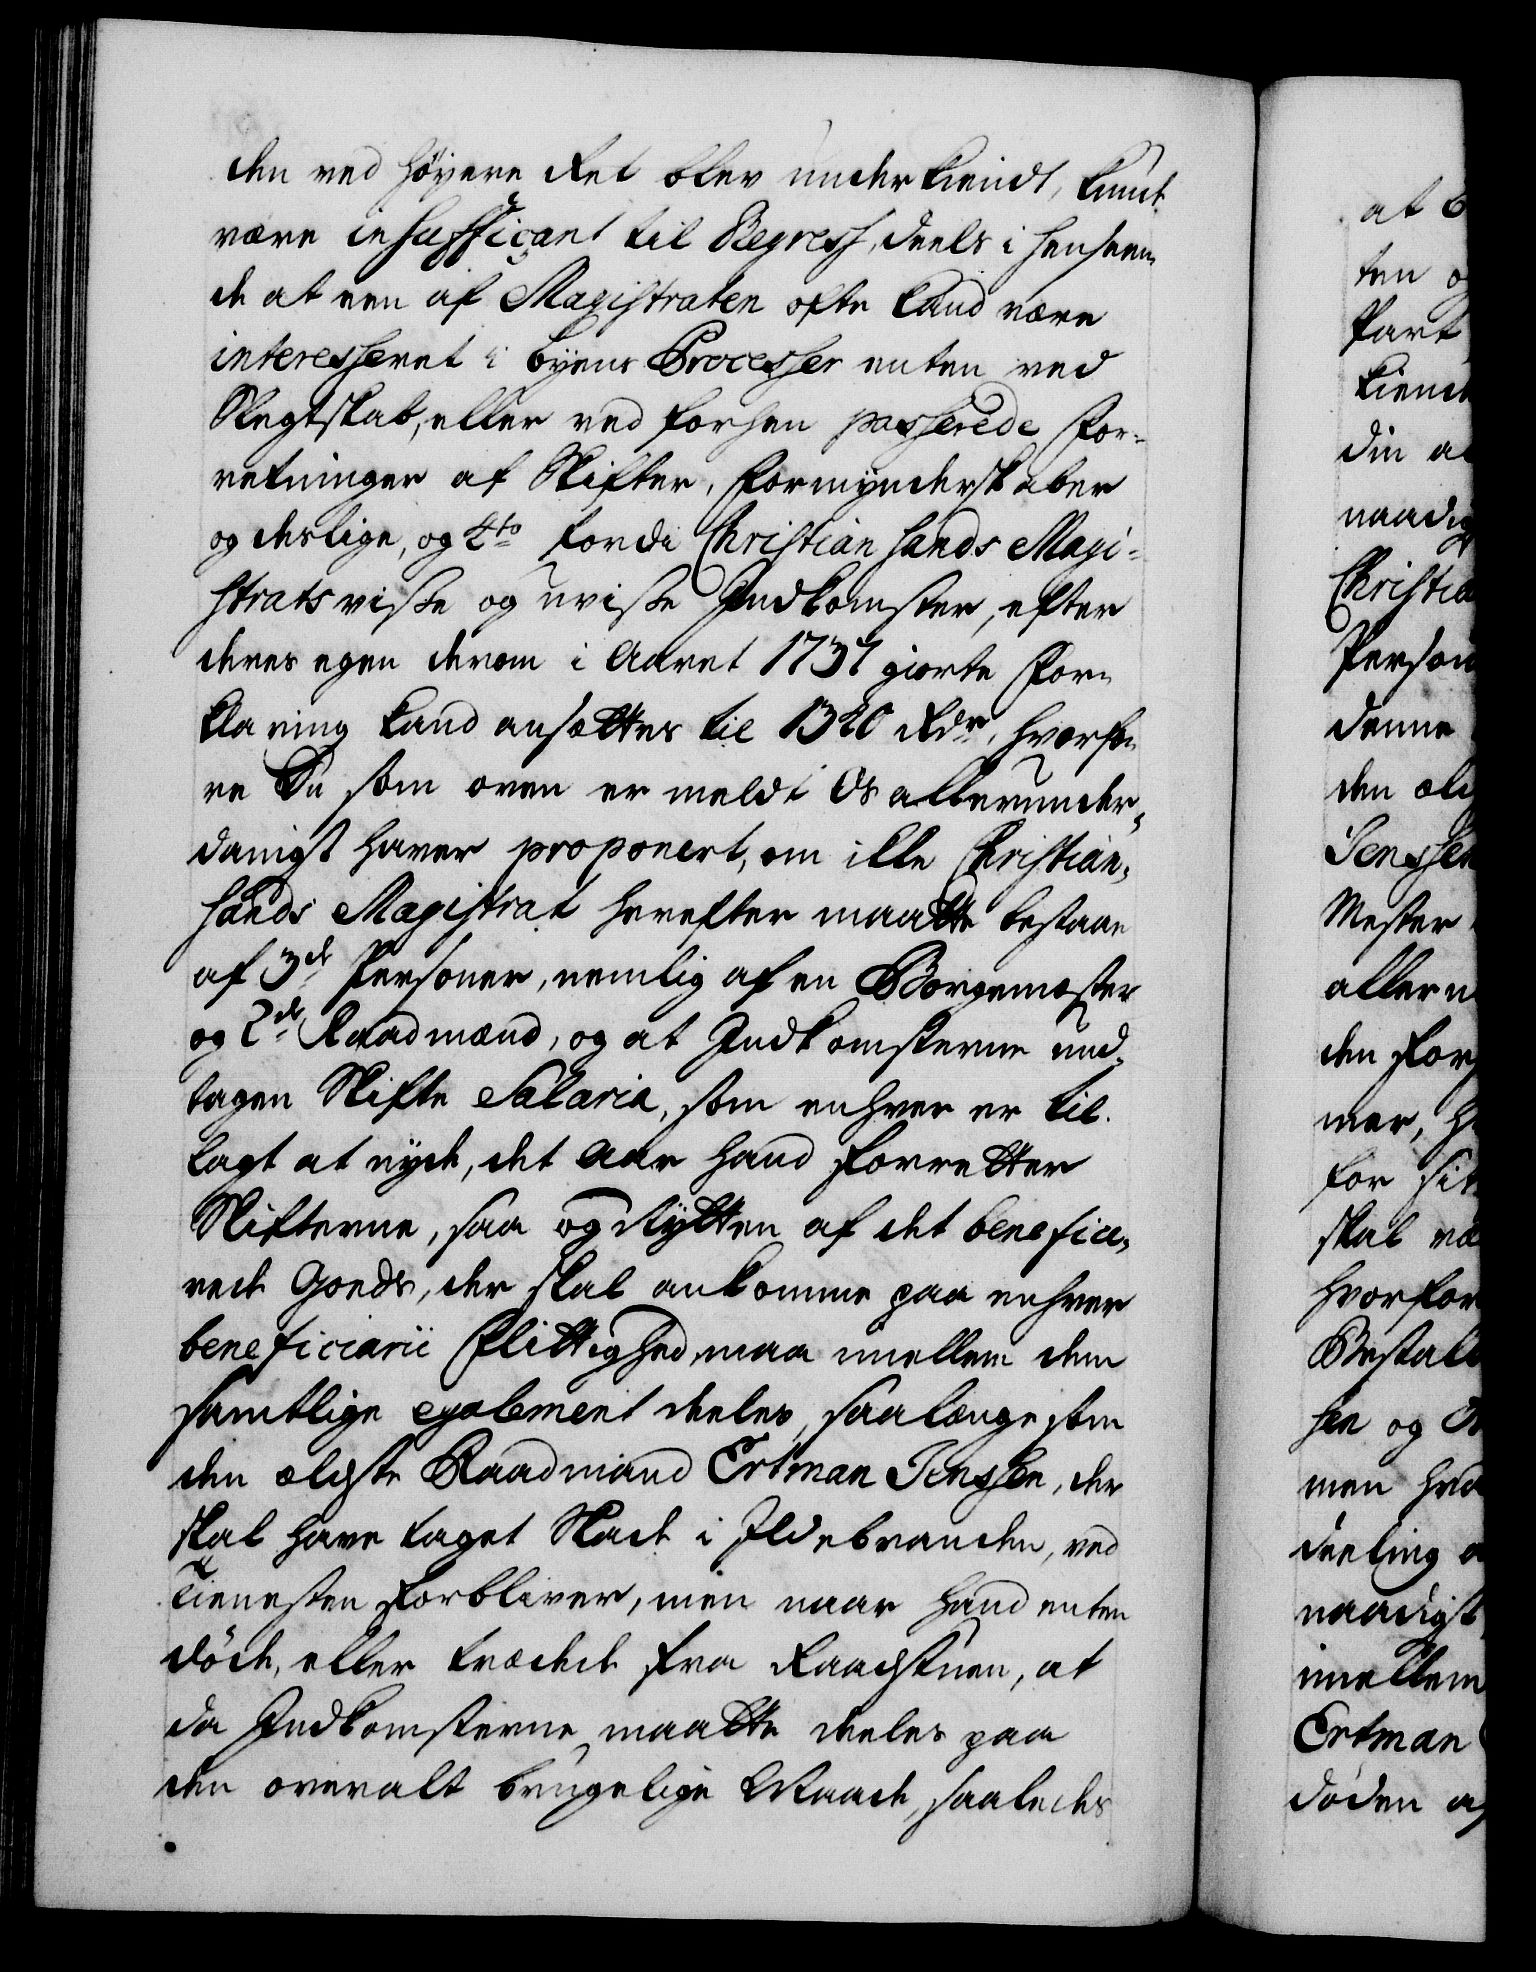 den ved höyere Ret blev underkiendt, kunde
være insufficant til Regress, deels i henseen-
de at een af Magistraten ofte kand være
interesseret i Byens Processer enten ved
Slegtskab, eller ved forhen passerede For-
retninger af Skifter, Formynderskaber
og deslige, og 4to fordi Christiansands Magi-
strats visse og uvisse Indkomster, efter
deres egen derom i Aaret 1737 giorte For-
klaring kand ansættes til 1340 Rdr, hvorfo-
re Du som oven er meldt Os allerunder-
danigst haver proponert, om icke Christian-
sands Magistrat herefter maatte bestaae
af 3de Personer, nemlig af en Borgemester
og 2de Raadmænd, og at Indkomsterne und-
tagen Skifte Salaria, som enhver er til-
lagt at nyde, det Aar hand forretter
Skifterne, saa og Nytten af det benefice-
rede Gods, der skal ankomme paa enhver
beneficiarii Flittighed, maa imellem dem
samtlige egalement deeles, saalænge som
den ældste Raadmand Ertman Jenssen, der
skal have taget Skade i Ildebranden, ved
Tienesten forbliver, men naar hand enten
döde, eller trædede fra Raadstuen, at
da Indkomsterne maatte deeles paa
den overalt brugelige Maade, saaledes
at
ten
Part
kiendt
din
naadig
Christia
Person
denne
den æld
Jenssen
Mester
allern
den for
mer,
for sit
skal væ
hvorfor
Bestall
sen og
men hva
deeling
naadigst
imellem
Ertman
döden